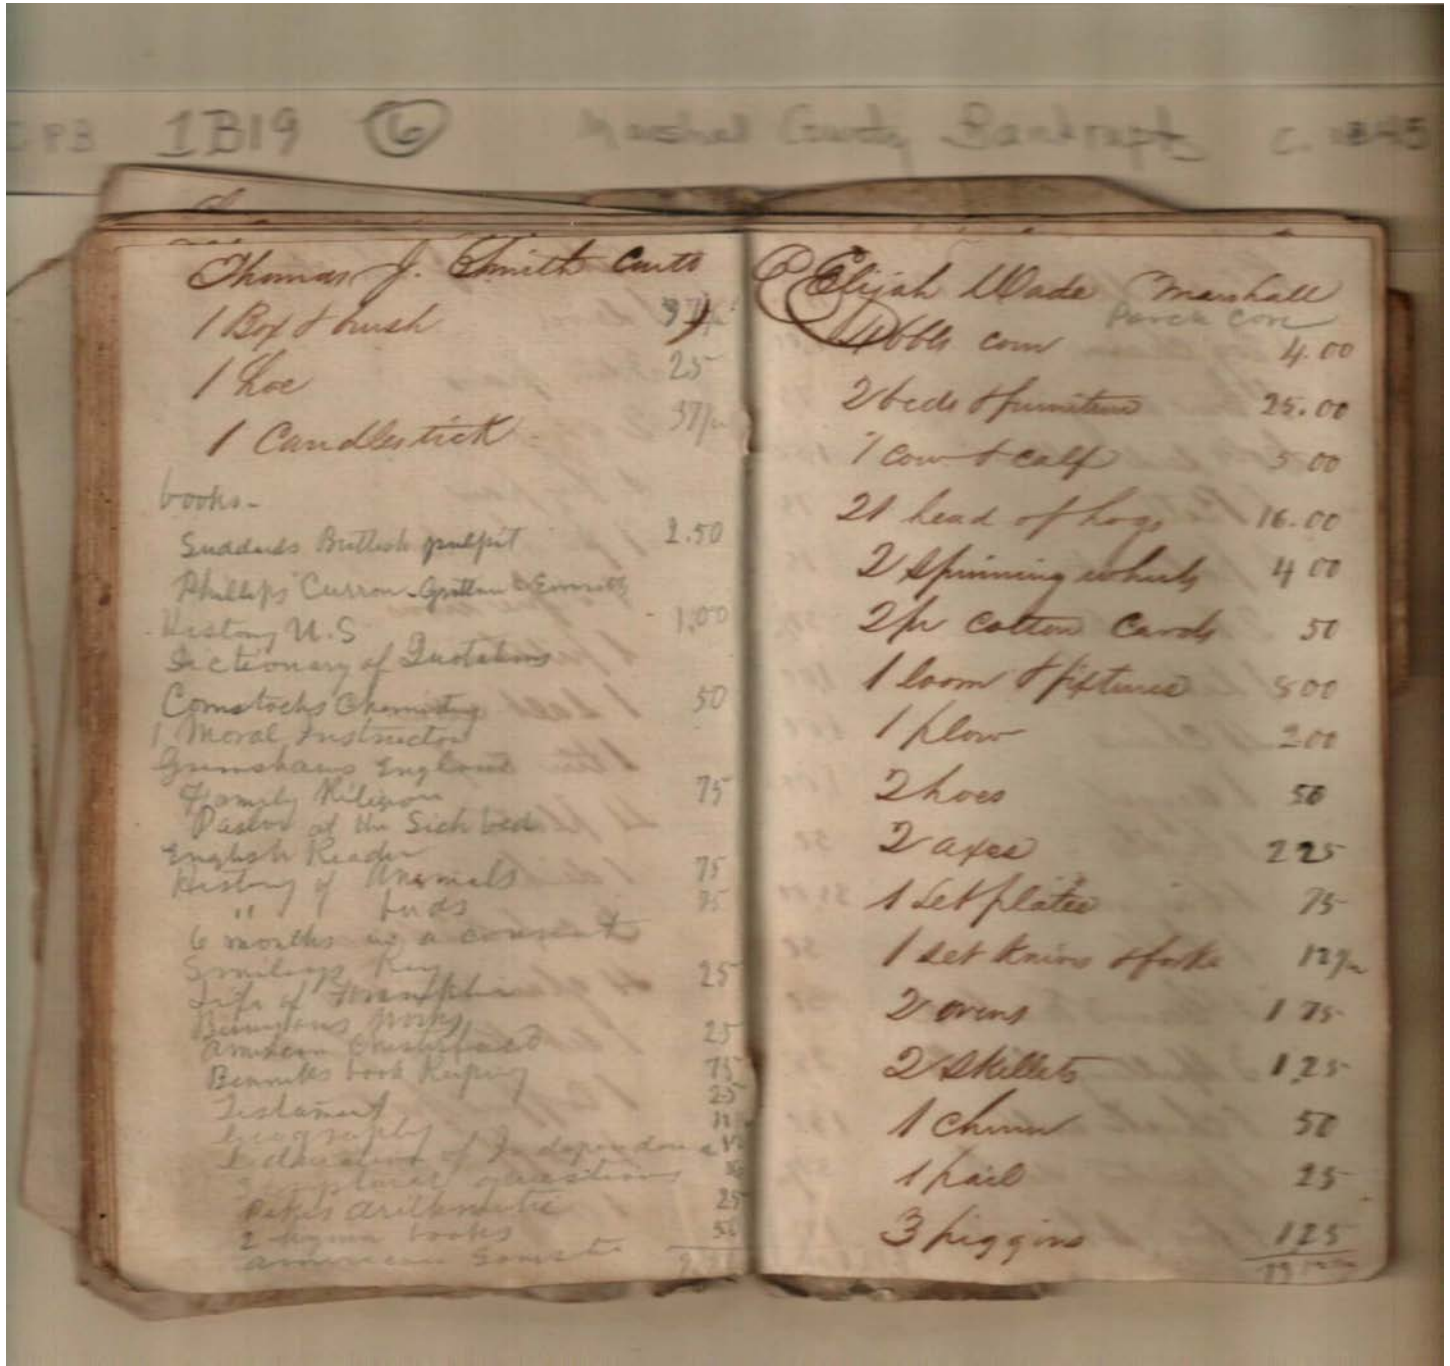 1B19 6 Marshal County Bankrupts C. 1845
Thomas J. Smith Contd
1 Box & brush 37½
1 hoe 25
1 Candlestick 37½
books-
Suddards Brittish pulpit 2.50
Phillips Curran Grattan & Emmitts
History U.S 1,00
Dictionary of Quotations
Comstocks Chemistry 50
1 Moral Instructor
Grimshaws England
Family Religion 75
Pastor at the Sick bed
English Reader
History of Animals 75
" " birds
6 months in a convent
Smileys Key 25
Life of
Bunyans works
American Chesterfield 25
Bennetts book Keeping 75
Testament 25
Geography
Declaration of Independence
Scriptural questions
Pikes arithmetic 25
2 hymn books
american
Elijah Wade Marshall
4 bbls corn 4.00
2 beds & furniture 25.00
1 cow & calf 5 00
21 head of hogs 16.00
2 Spinning wheels 4 00
2 pr cotton Cards 50
1 loom & fixtures 8 00
1 plow 2 00
2 hoes 50
2 axes 2 25
1 Set plates 75
1 set knives & forks 12½
2 ovens 1 75
2 Skillets 1.25
1 Churn 50
1 pail 25
3 piggins 1 25